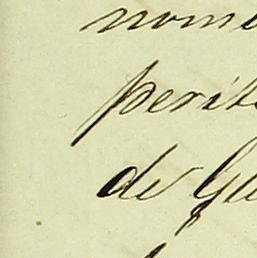 nome
perit
de Gu